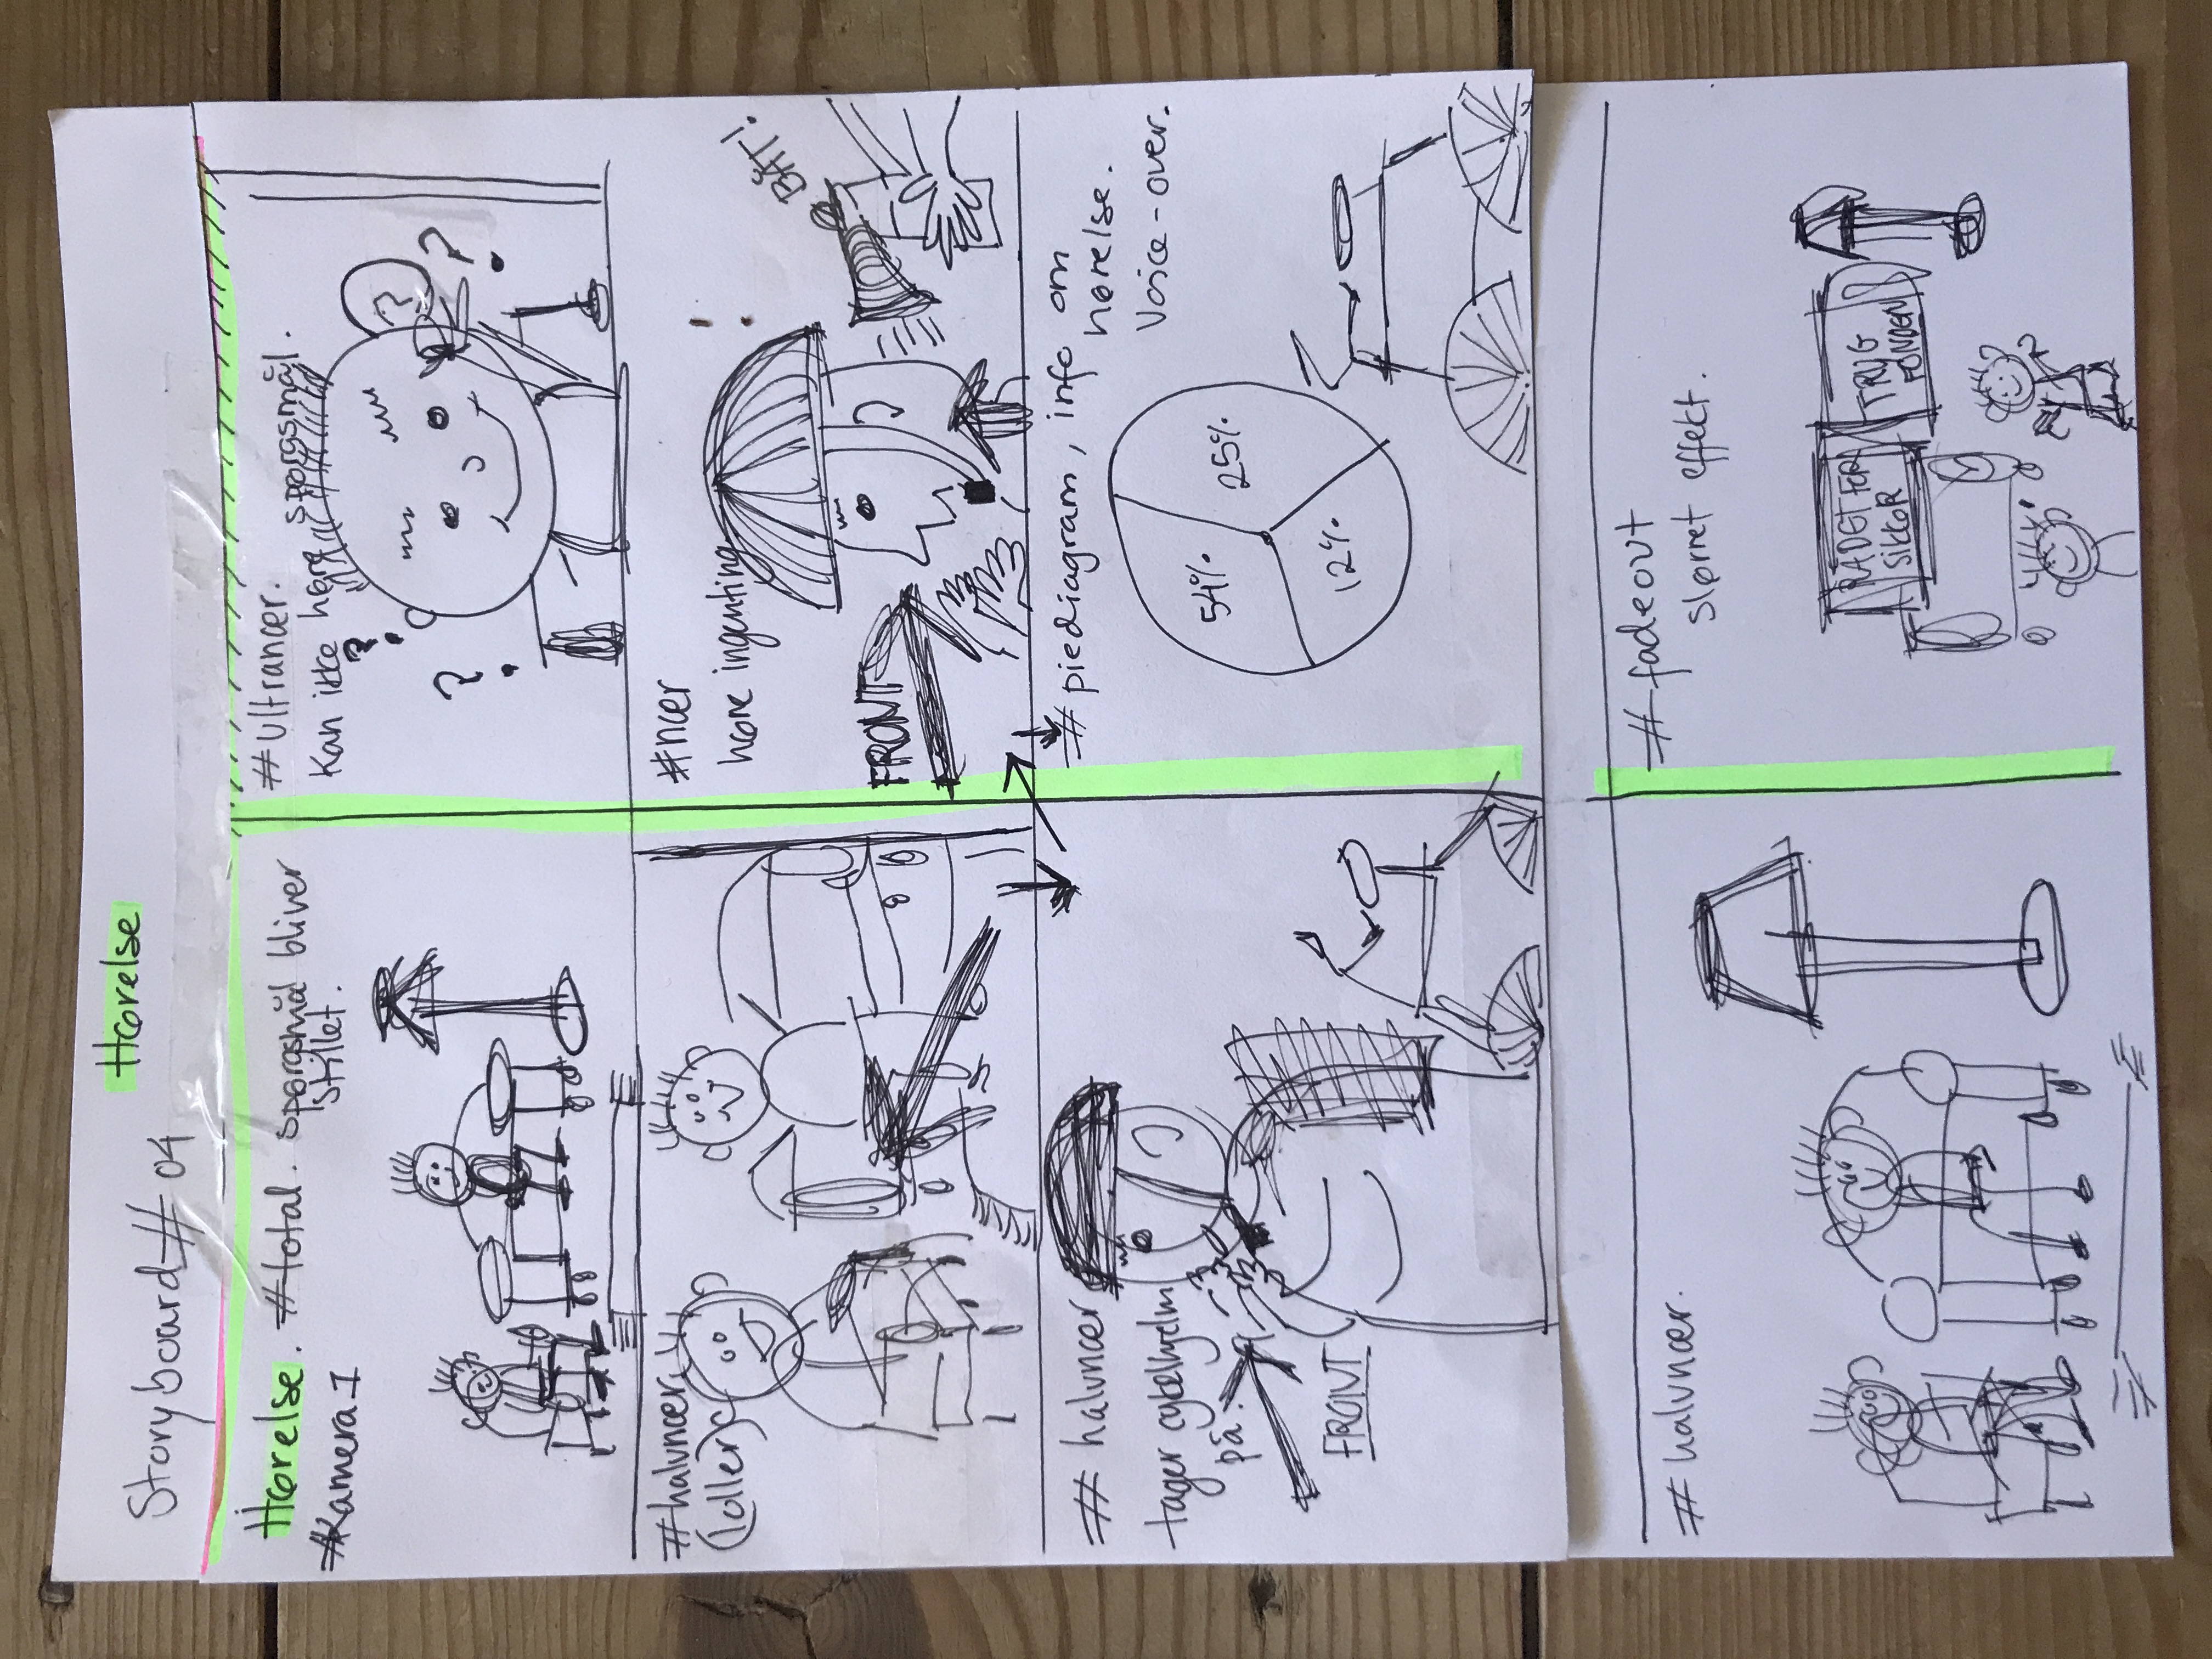 Hørelse
Storyboard # 04
Hørelse. #total. spørgsmål bliver
stillet.
#Kamera 1
#Ultranær.
Kan ikke høre spørgsmål.
? ? ? ?
#halvnær
(loller)
#nær
høre ingenting
!
BÅT!
FRONT
# halvnær
tager cykelhjelm
på.
FRONT
# piediagram, info om
hørelse.
Voice-over.
54%
25%
12%
# halvnær.
# fadeout
slørret effekt.
RÅDET FOR
SIKKER
TRYG
FONDEN